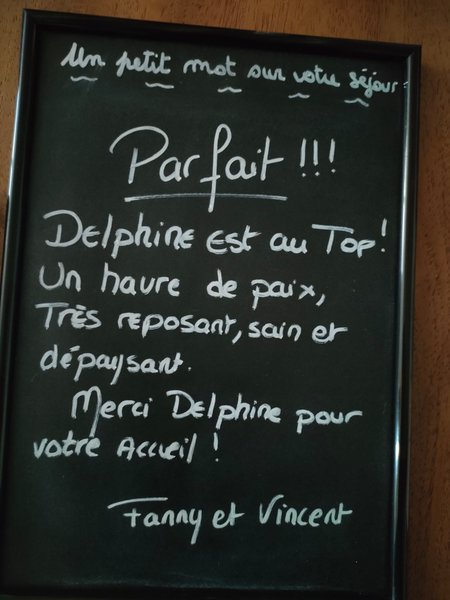 Un petit mot sur votre séjour :
Parfait !!!
DELPHINE EST au TOP !
Un havre de paix,
TRÈS REPOSANT, sain et
dépaysant.
Merci DELPHINE pour
votre Accueil !
Fanny et Vincent